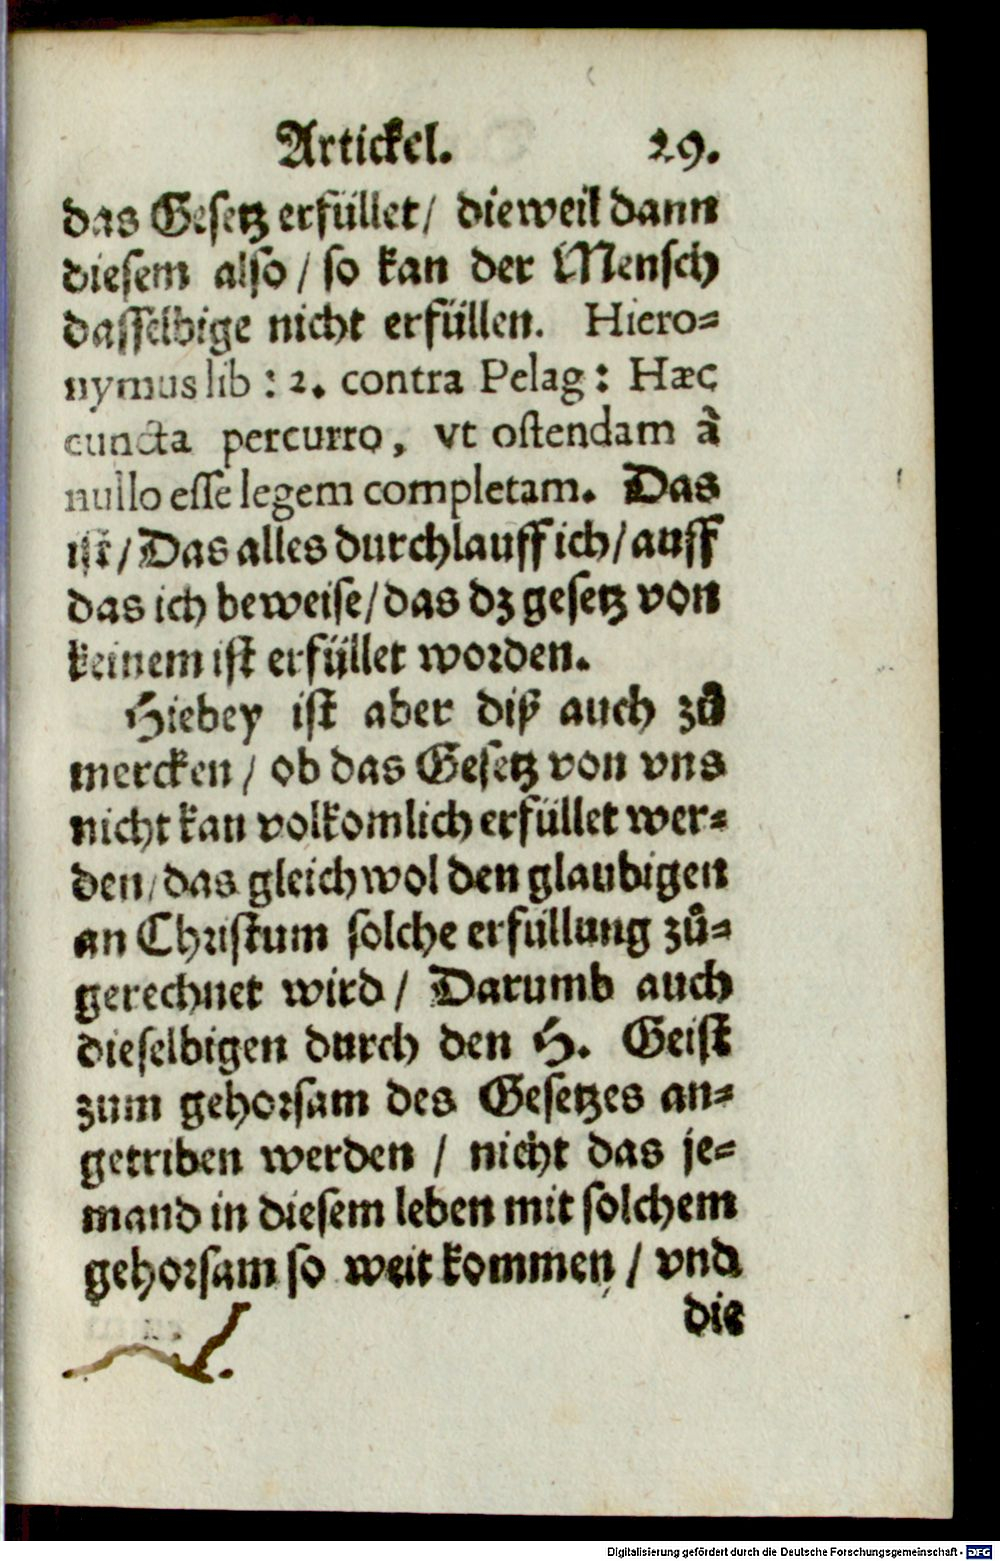 Artickel. 29.
das Gesetz erfüllet/ dieweil dann
diesem also/ so kan der Mensch
dasselbige nicht erfüllen. Hiero=
nymus lib: 2. contra Pelag: Hæc
cuncta percurro, vt ostendam à
nullo esse legem completam. Das
ist/ Das alles durchlauff ich/ auff
das ich beweise/ das dz gesetz von
keinem ist erfüllet worden.
Hiebey ist aber diß auch zů
mercken/ ob das Gesetz von vns
nicht kan volkomlich erfüllet wer=
den/ das gleichwol den glaubigen
an Christum solche erfüllung zů=
gerechnet wird/ Darumb auch
dieselbigen durch den H. Geist
zum gehorsam des Gesetzes an=
getriben werden/ nicht das je=
mand in diesem leben mit solchem
gehorsam so weit kommen/ vnd
die
Digitalisierung gefördert durch die Deutsche Forschungsgemeinschaft - DFG